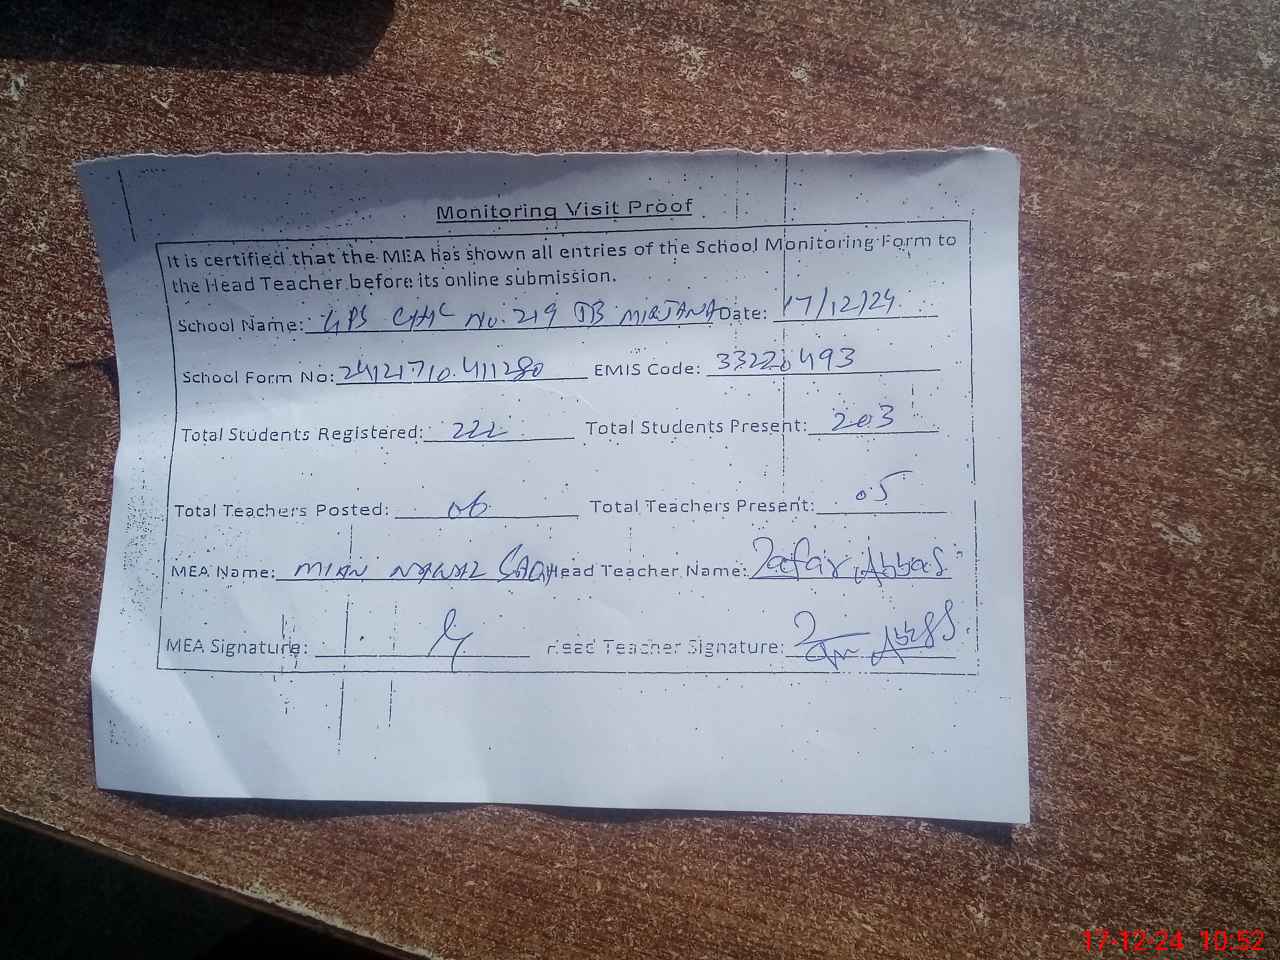 Monitoring Visit Proof
It is certified that the MEA has shown all entries of the School Monitoring Form to
the Head Teacher before its online submission.
School Name: GPS CHK No. 219 JB MIRJANA Date: 17/12/24
School Form No: 24121710411280 EMIS Code: 33220493
Total Students Registered: 222 Total Students Present: 203
Total Teachers Posted: 06 Total Teachers Present: 05
MEA Name: MIAN Head Teacher Name: Zafar Abbas
MEA Signature: Head Teacher Signature: Abbas
17-12-24 10:52